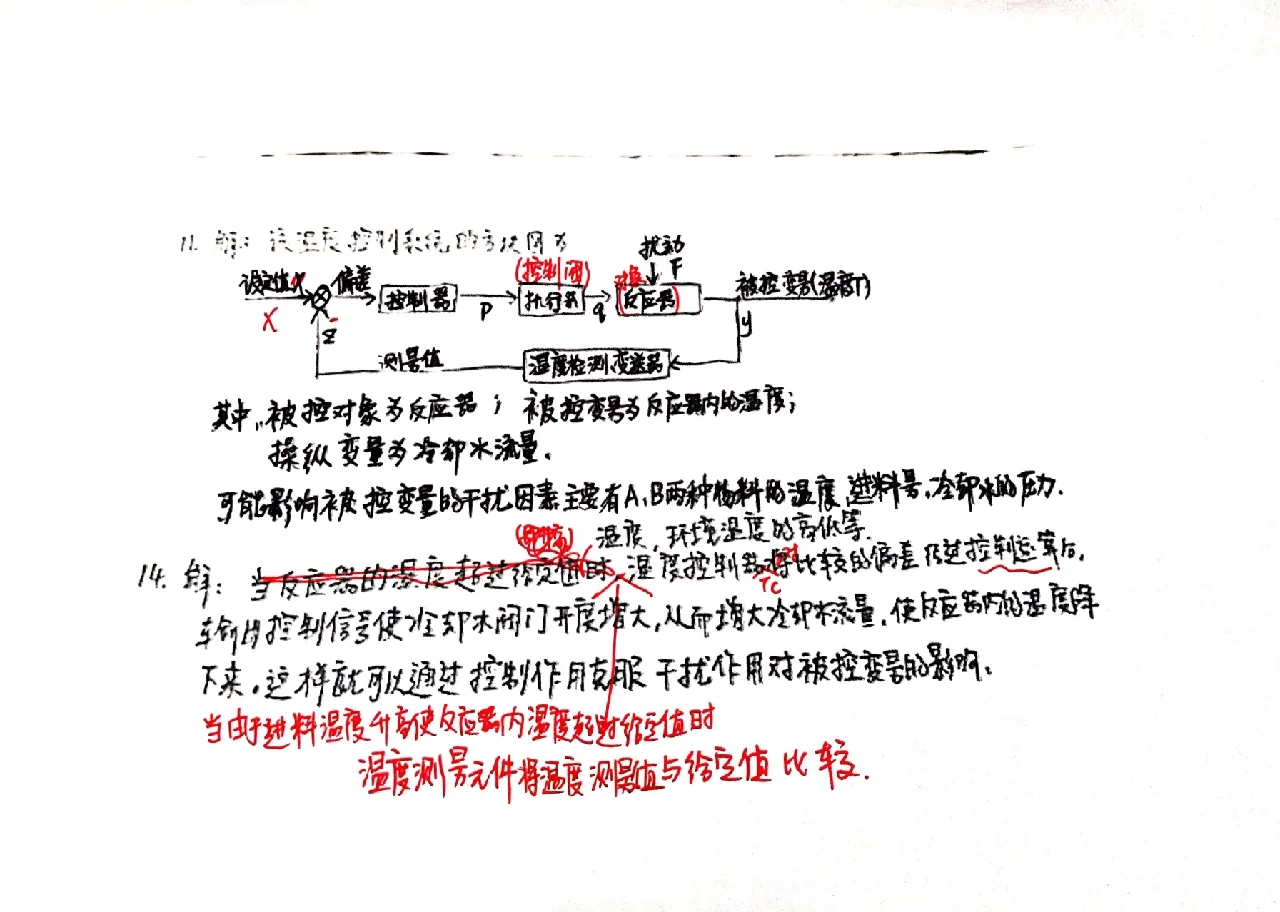 11. 解：该温度控制系统的方块图为
扰动
(控制阀) 对象 F
设定值X 偏差 控制器 P 执行器 q (反应器) 被控变量(温度T)
X - Z y
测量值 温度检测、变送器
其中，被控对象为反应器；被控变量为反应器内的温度；
操纵变量为冷却水流量.
可能影响被控变量的干扰因素主要有A、B两种物料的温度、进料量，冷却水的压力.
温度，环境温度的高低等.
14. 解：当反应器的温度超过给定值时，温度控制器将比较的偏差经过控制运算后，
TC 对
输出控制信号使冷却水阀门开度增大，从而增大冷却水流量，使反应器内的温度降
下来，这样就可以通过控制作用克服干扰作用对被控变量的影响。
当由于进料温度升高使反应器内温度超过给定值时
温度测量元件将温度测量值与给定值比较.